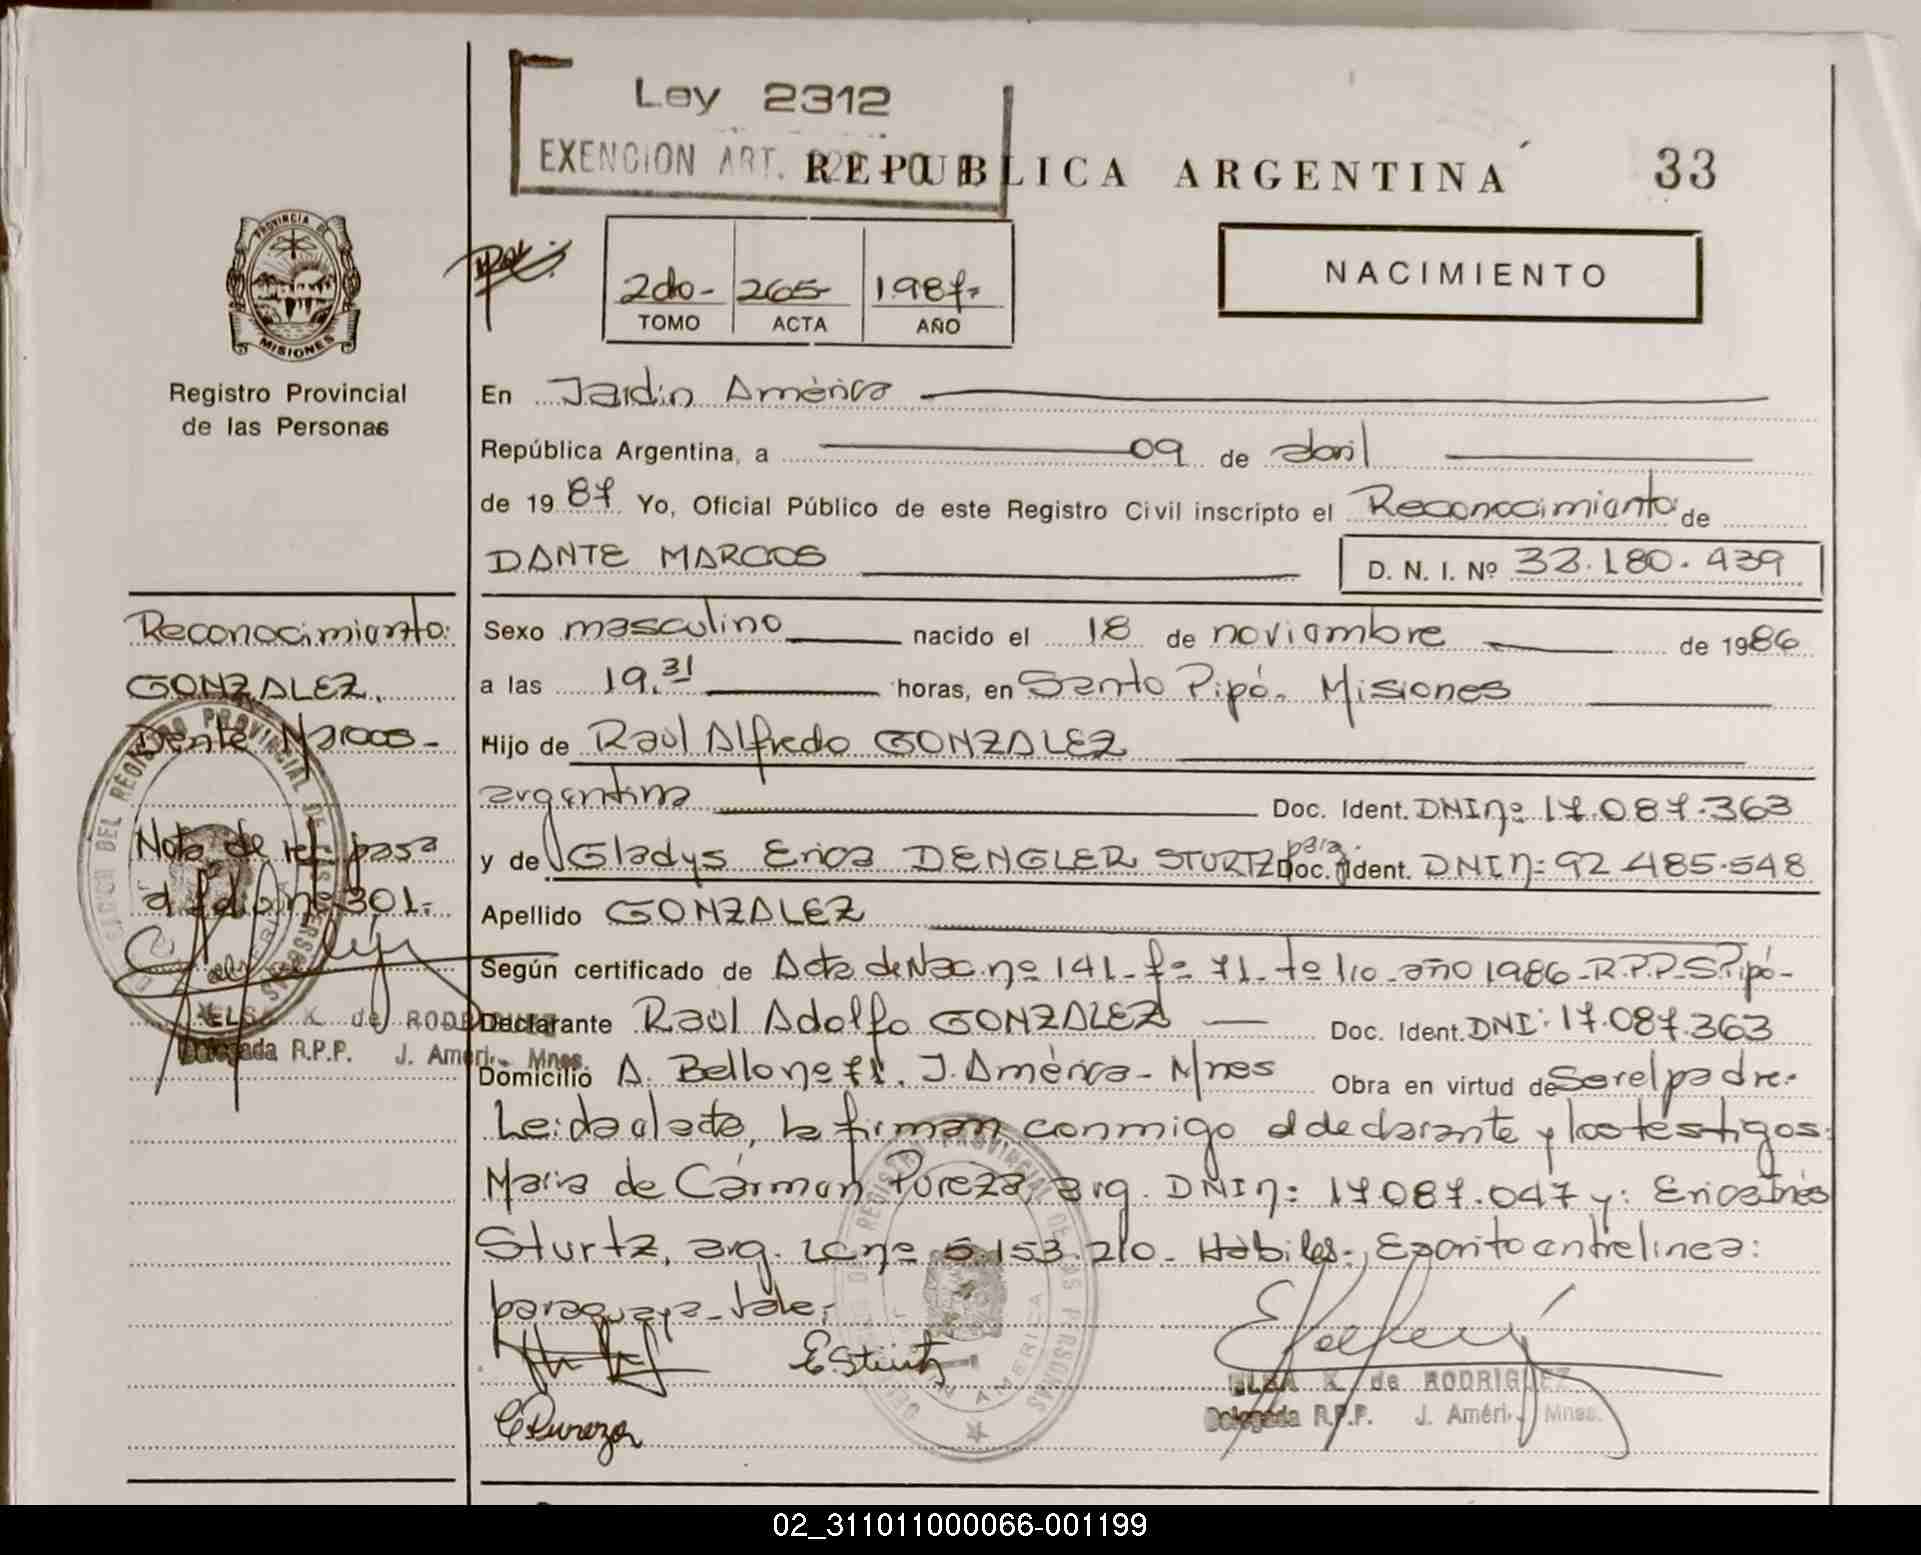 Ley 2312
EXENCION ART.
REPUBLICA ARGENTINA
33
PROVINCIA DE
MISIONES
Registro Provincial
de las Personas
2do- 265- 1987-
TOMO ACTA AÑO
NACIMIENTO
En Jardin América
República Argentina, a 09 de abril
de 1987 Yo, Oficial Público de este Registro Civil inscripto el Reconocimiento de
DANTE MARCOS D. N. I. Nº 33.180.439
Reconocimiento:
GONZALEZ,
Dante Marcos-
Nota de ref. pasa
al folio nº 301.-
ELSA K. de RODRIGUEZ
Delegada R.P.P. J. Améri. Mnes.
Sexo masculino nacido el 18 de noviembre de 1986
a las 19.31 horas, en Santo Pipó- Misiones
Hijo de Raúl Alfredo GONZALEZ
argentina Doc. Ident. DNI nº 17.087.363
y de Gladys Erica DENGLER STURTZ para. Doc. Ident. DNI n: 92.485.548
Apellido GONZALEZ
Según certificado de Acta de Nac. nº 141- fº 71- tº 1ro- año 1986-R.P.P-S.Pipó-
Declarante Raúl Adolfo GONZALEZ Doc. Ident. DNI: 17.087.363
Domicilio A. Bello nº 71. J. América- Mnes Obra en virtud de Ser el padre.-
Leída el acta, la firman conmigo el declarante y los testigos:
Maria de Cármen Pureza, arg. DNI n: 17.087.047 y: Erica Inés
Sturtz, arg. LC nº 5.153.210- Hábiles-, Escrito entrelinea:
paraguaya- Vale,-
E. Sturtz
C Pureza
ELSA K. de RODRIGUEZ
Delegada R.P.P. J. Améri. Mnes.
02_311011000066-001199